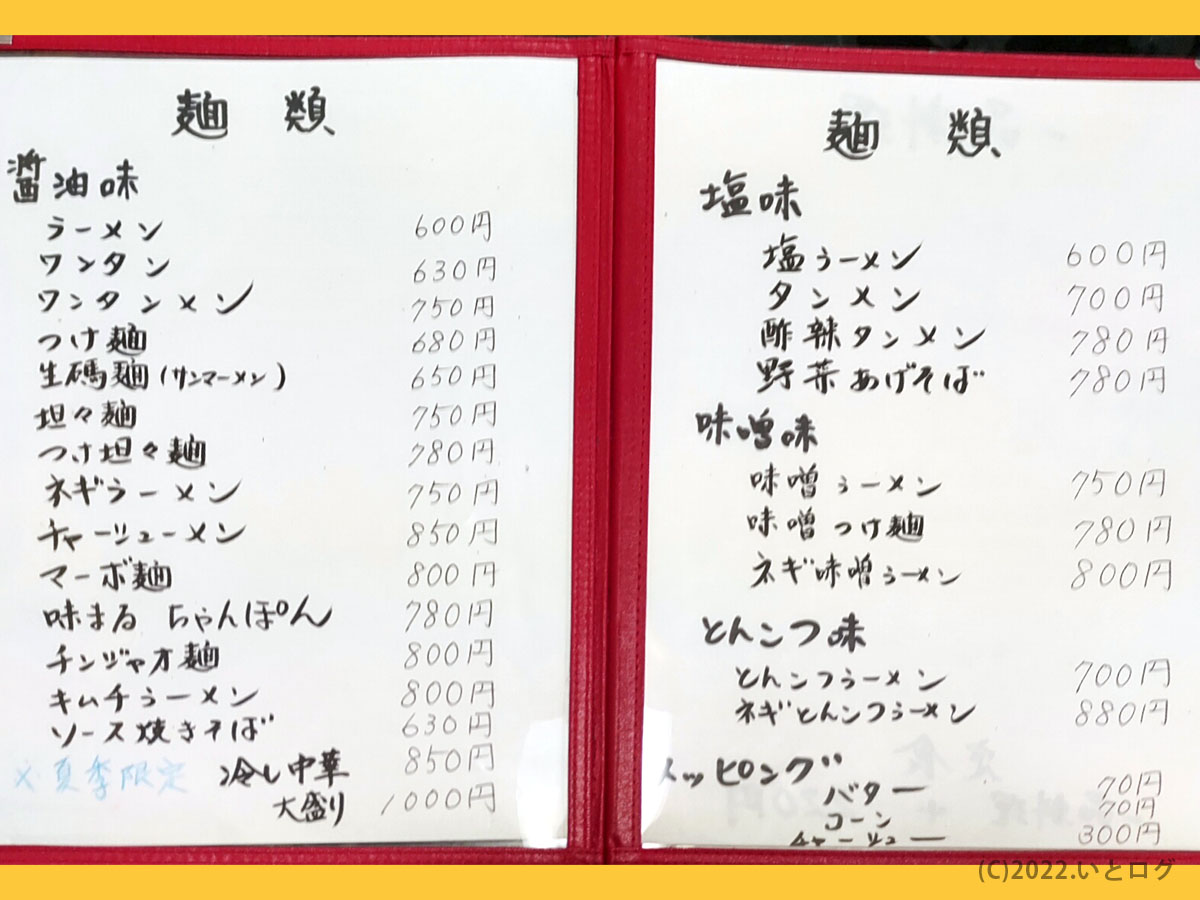 麺類
醤油味
ラーメン 600円
ワンタン 630円
ワンタンメン 750円
つけ麺 680円
生碼麺(サンマーメン) 650円
坦々麺 750円
つけ坦々麺 780円
ネギラーメン 750円
チャーシューメン 850円
マーボ麺 800円
味まるちゃんぽん 780円
チンジャオ麺 800円
キムチラーメン 800円
ソース焼きそば 630円
※夏季限定 冷し中華 850円
大盛り 1000円
麺類
塩味
塩らーメン 600円
タンメン 700円
酢辣タンメン 780円
野菜あげそば 780円
味噌味
味噌らーメン 750円
味噌つけ麺 780円
ネギ味噌らーメン 800円
とんこつ味
とんこつらーメン 700円
ネギとんこつラーメン 880円
トッピング
バター 70円
コーン 70円
チャーシュー 300円
(C)2022.いとログ